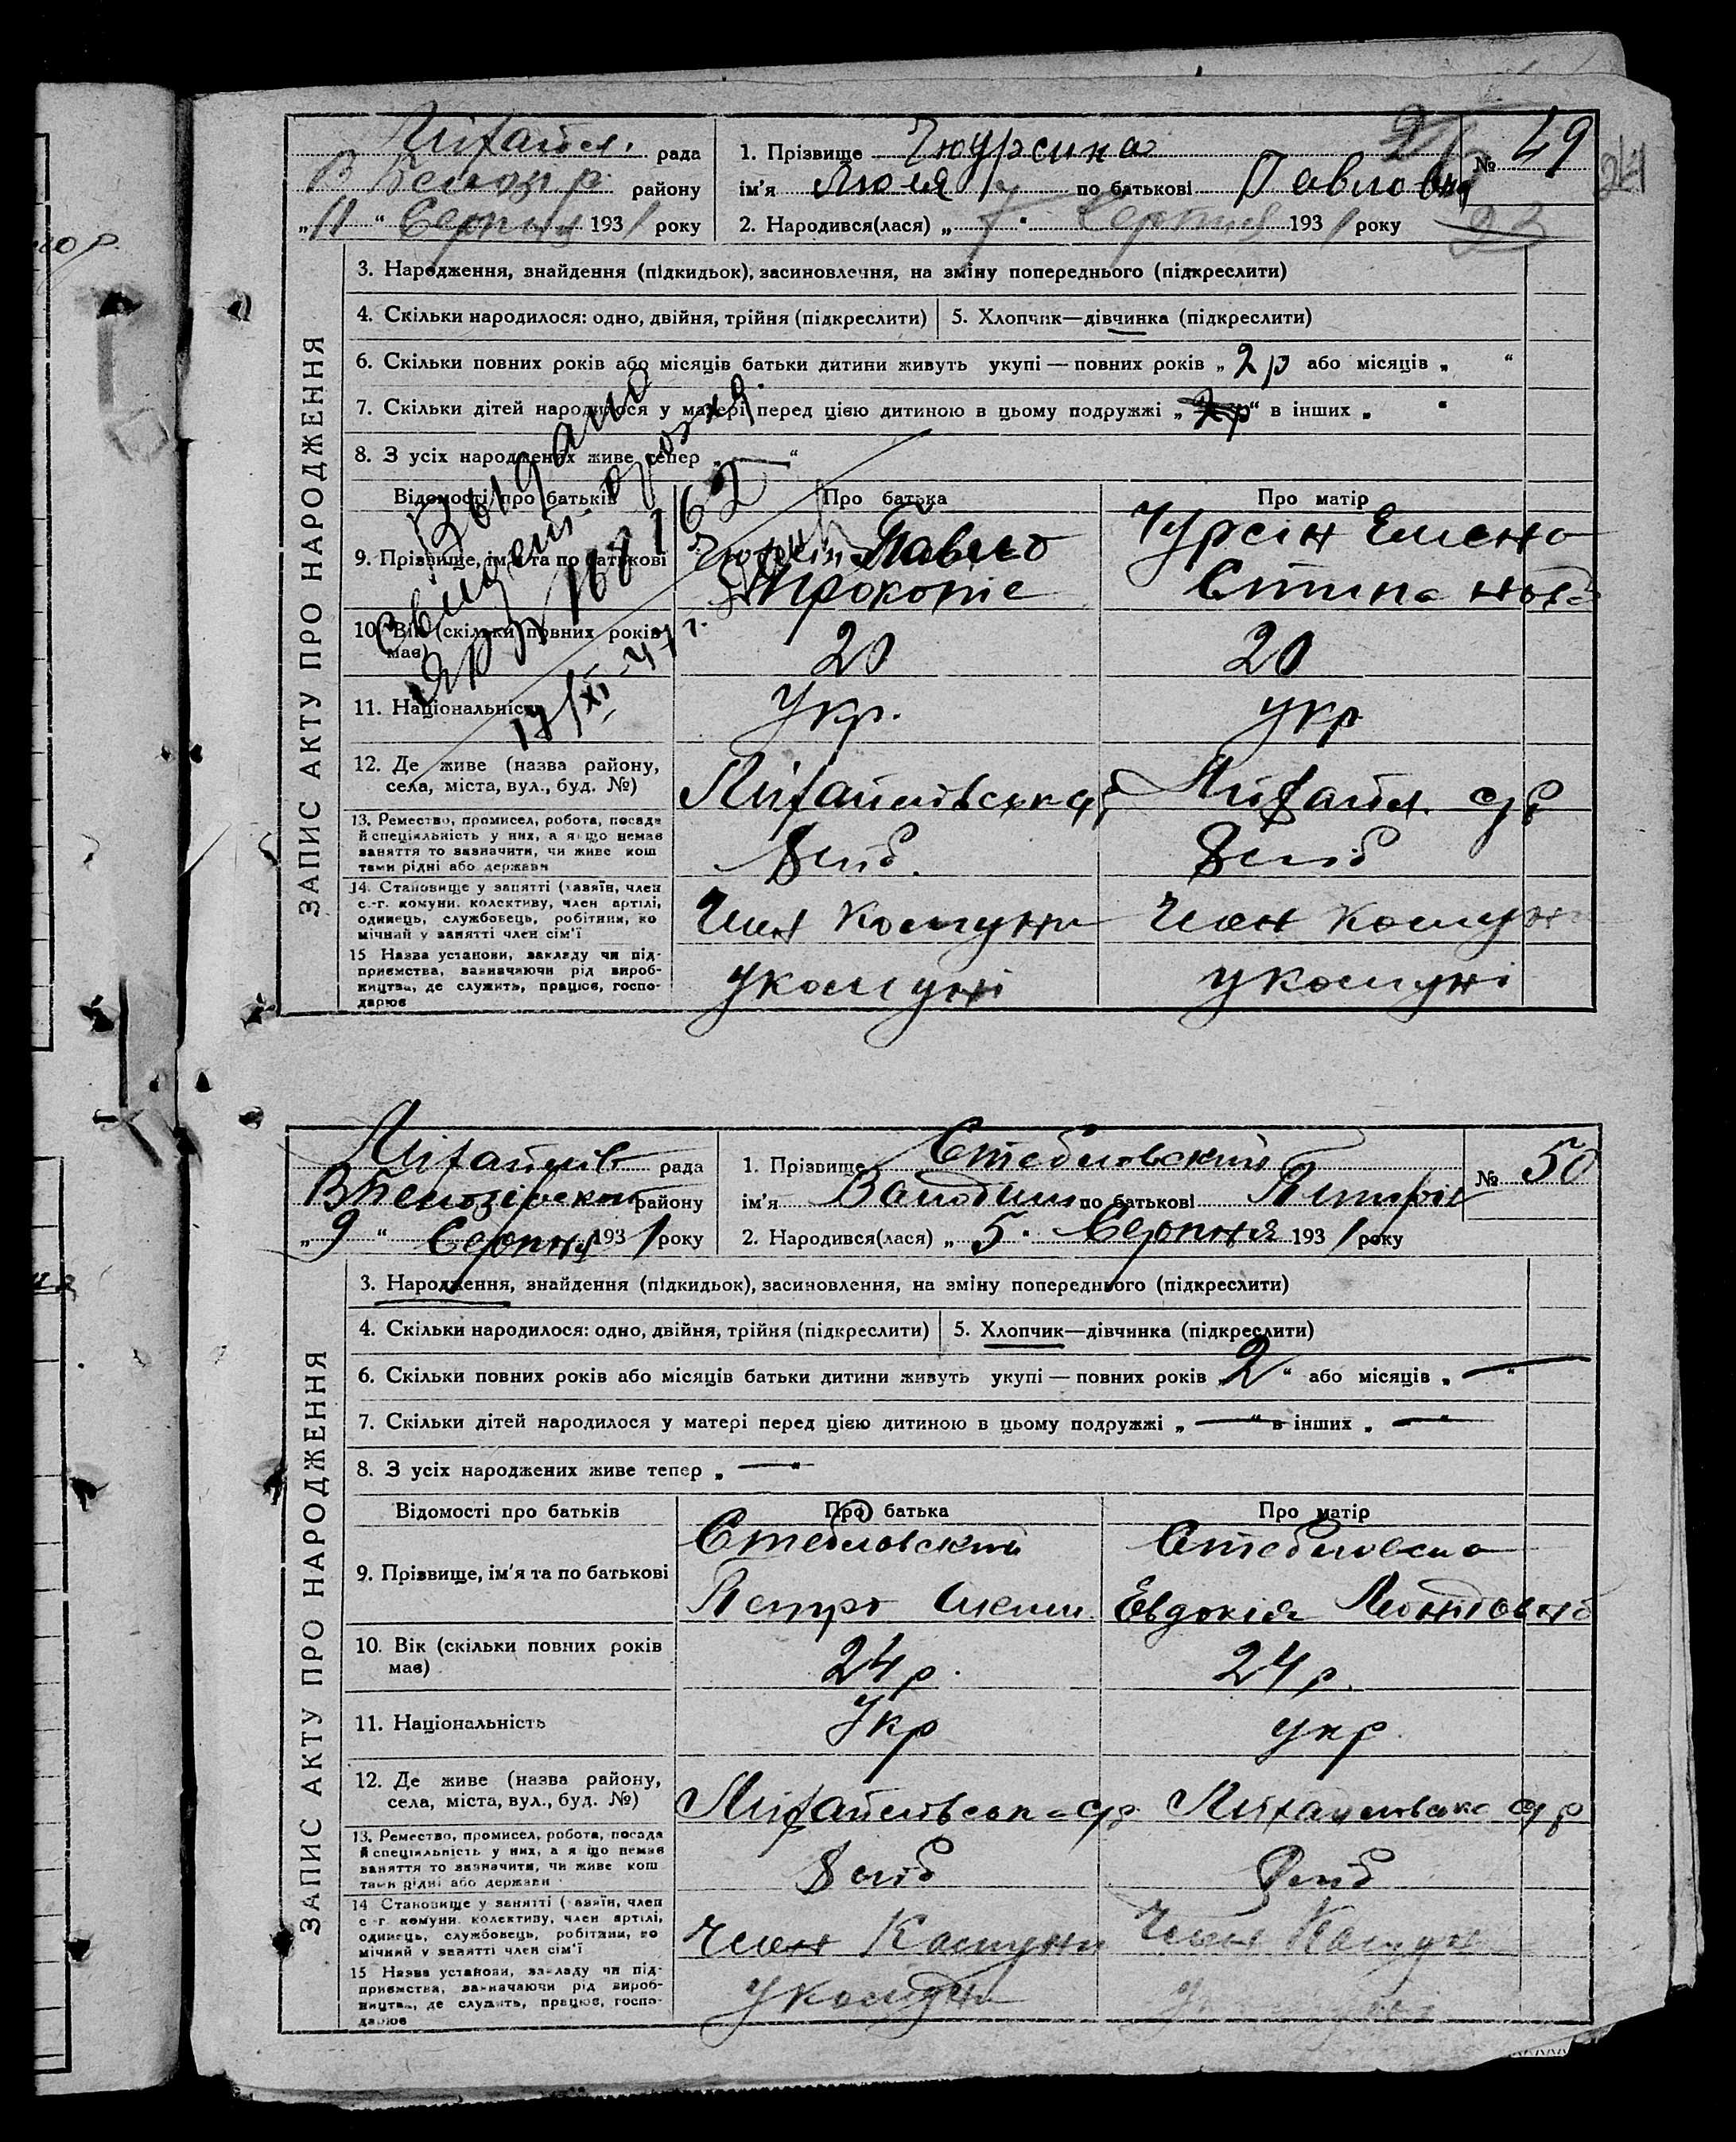 Михайл. рада
В Белозір. району
„11“ Серпня 1931 року
1. Прізвище Чюурсина
ім'я Люля по батькові Павловна
2. Народився(лася) „7“ Серпня 1931 року
№ 49
24
23
ЗАПИС АКТУ ПРО НАРОДЖЕННЯ
3. Народження, знайдення (підкидьок), засиновлення, на зміну попереднього (підкреслити)
4. Скільки народилося: одно, двійня, трійня (підкреслити)
5. Хлопчик—дівчинка (підкреслити)
6. Скільки повних років або місяців батьки дитини живуть укупі — повних років „2 р або місяців „ “
7. Скільки дітей народилося у матері перед цією дитиною в цьому подружжі „2р“ в інших „ “
8. З усіх народжених живе тепер „—“
Відомості про батьків
Про батька
Про матір
9. Прізвище, ім'я та по батькові
Павло
Прокопіє
Чурсін Елена
Степановна
10. Вік (скільки повних років має)
20
20
11. Національність
Укр.
укр
12. Де живе (назва району,
села, міста, вул., буд. №)
Михайлівська с/р
Михайл. с/р
13. Ремество, промисел, робота, посада
й спеціяльність у них, а якщо немає
заняття то зазначити, чи живе кош
тами рідні або держави
Хліб.
Хліб
14. Становище у занятті (хазяїн, член
с.-г. комуни, колективу, член артілі,
одинець, службовець, робітник, по
мічний у занятті член сім'ї
Член Комуни
Член Комун
15 Назва установи, закладу чи під-
приємства, зазначаючи рід вироб-
ництва, де служить, працює, госпо-
дарює
укомуні
укомуні
Выдано
свідцет. о рожд.
ЯР № 168162
17/XI-47 г.
Михайлів рада
В Белозірској району
„9“ Серпня 1931 року
1. Прізвище Стебловский
ім'я Володим по батькові Петров
2. Народився(лася) „5“ Серпня 1931 року
№ 50
ЗАПИС АКТУ ПРО НАРОДЖЕННЯ
3. Народження, знайдення (підкидьок), засиновлення, на зміну попереднього (підкреслити)
4. Скільки народилося: одно, двійня, трійня (підкреслити)
5. Хлопчик—дівчинка (підкреслити)
6. Скільки повних років або місяців батьки дитини живуть укупі — повних років „2“ або місяців „—“
7. Скільки дітей народилося у матері перед цією дитиною в цьому подружжі „—“ в інших „—“
8. З усіх народжених живе тепер „—“
Відомості про батьків
Про батька
Про матір
9. Прізвище, ім'я та по батькові
Стебловский
Петро
Стебловска
Евдокія Леонідовна
10. Вік (скільки повних років
має)
24 р.
24 р.
11. Національність
Укр
укр.
12. Де живе (назва району,
села, міста, вул., буд. №)
Михайлівська с/р
Михайловска с/р
13. Ремество, промисел, робота, посада
й спеціяльність у них, а якщо немає
заняття то зазначити, чи живе кош
тами рідні або держави
Хліб
Хліб
14 Становище у занятті (хазяїн, член
с.-г. комуни, колективу, член артілі,
одинець, службовець, робітник, по
мічний у занятті член сім'ї
Член Комуни
Член Комун
15 Назва установи, закладу чи під-
приємства, зазначаючи рід вироб-
ництва, де служить, працює, госпо-
дарює
укомуни